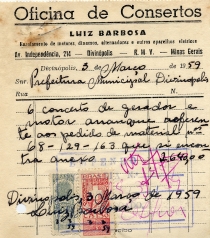 Oficina de Consertos
LUIZ BARBOSA
Enrolamento de motores, dinamos, alternadores e outros aparelhos elétricos
Av. Independência, 214 - Divinópolis - R.M.V. - Minas Gerais
Divinópolis, 3 de Março de 1959
Snr. Prefeitura Municipal Divinopolis
Rua N.
6 concerto de gerador e
motor aranique
te aos pedido de material nº
65-129-163 que si encon
tra anexo 2.640,00
Divinopolis, 3 de Março de 1959
Luiz Barbosa